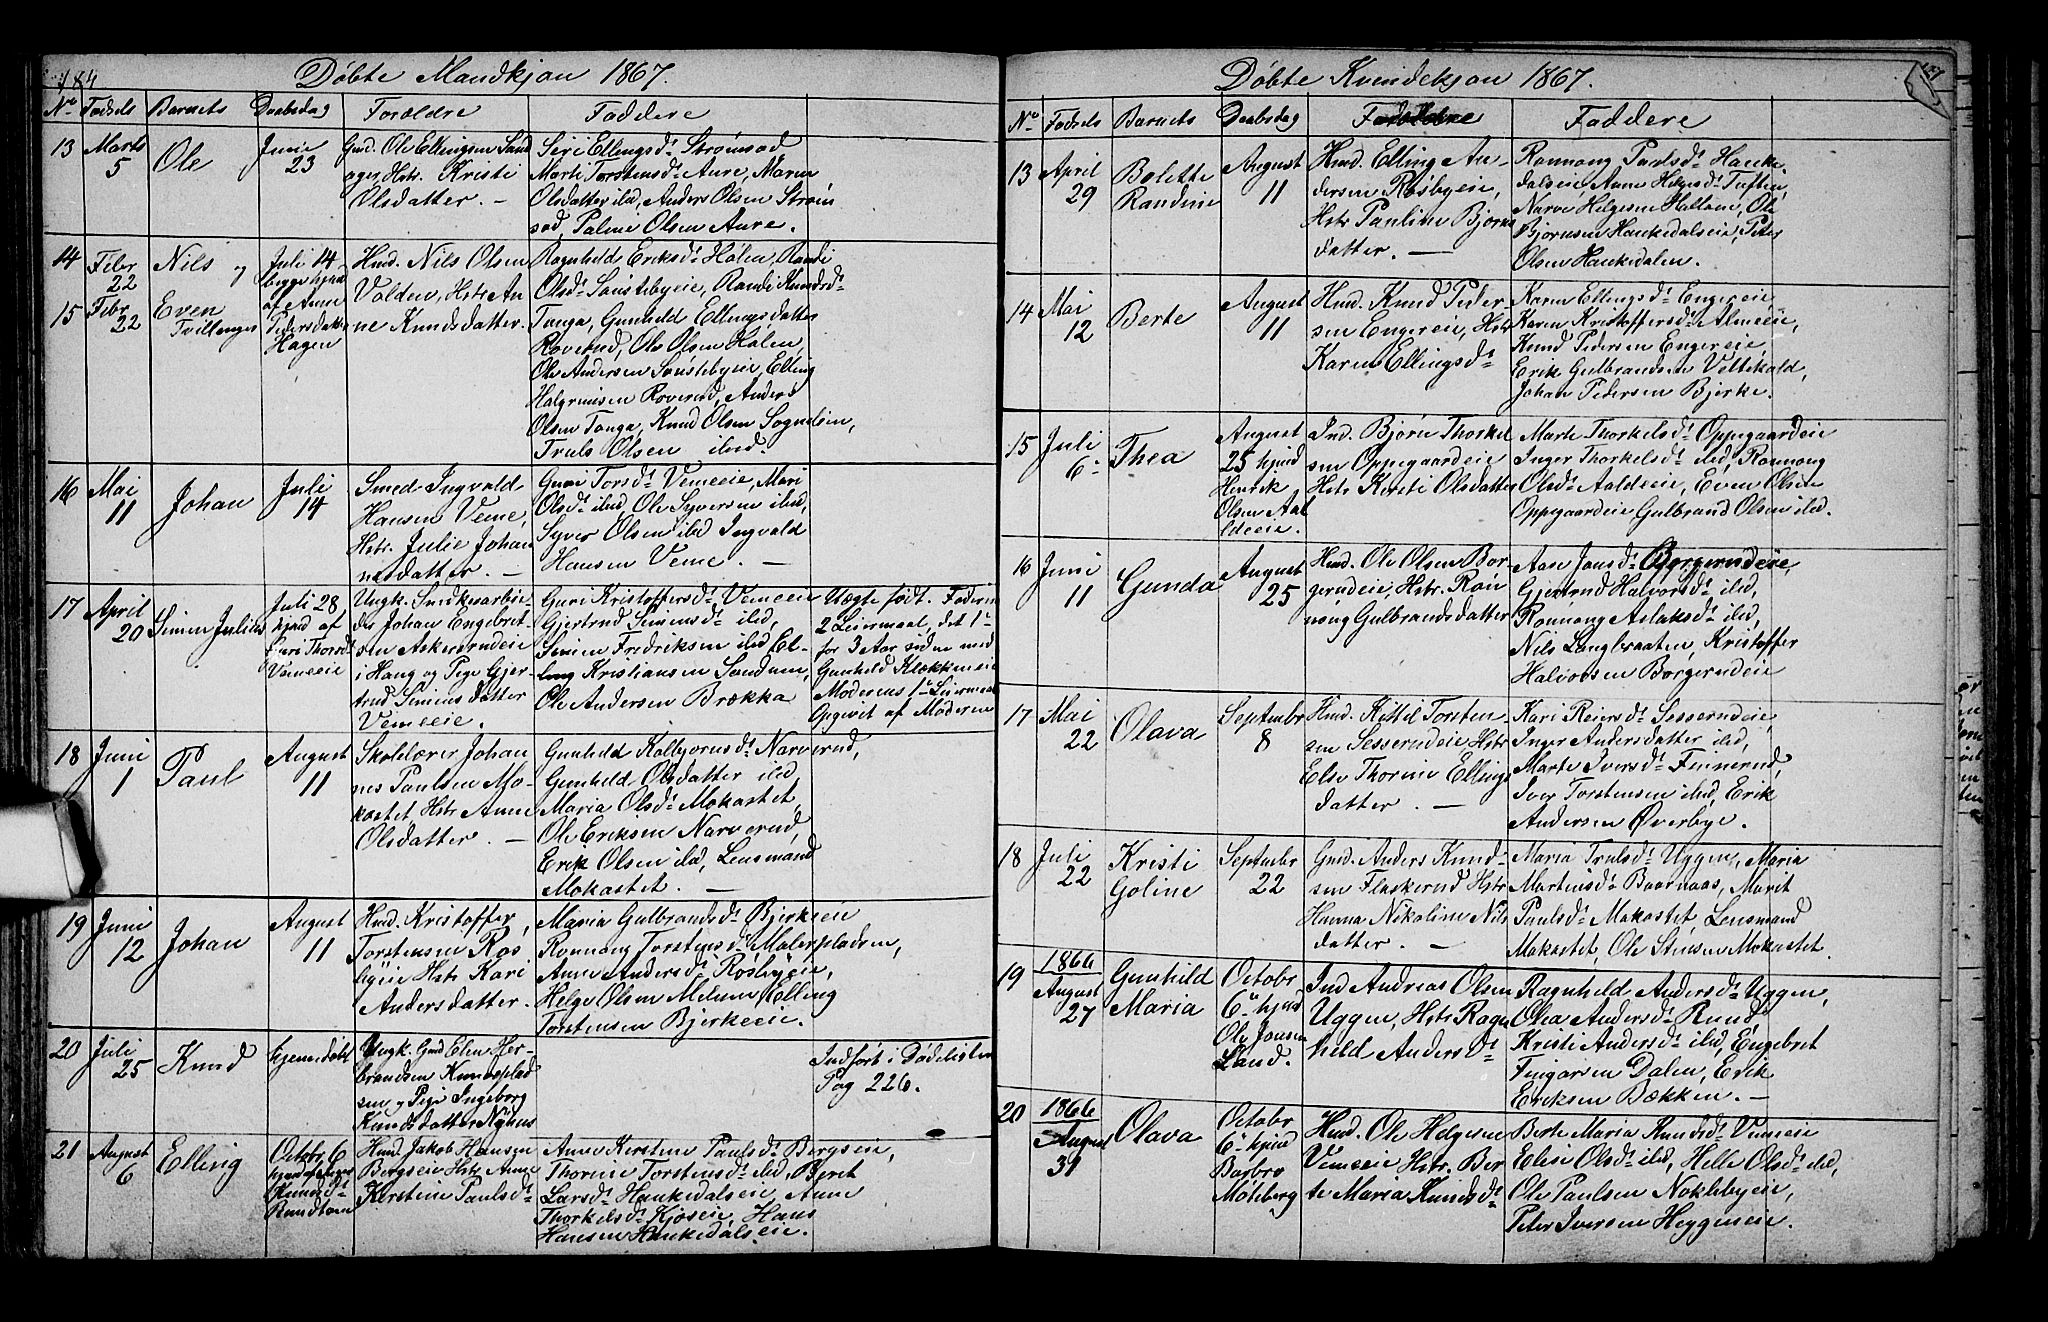 184
Døbte Mandkjøn 1867.
No Fødsels Barnets Daabsdag Foroldre Faddere
13 Marts 5 Ole Juni 23
Gmd. Ole Ellingsen Sand
ager, Hstr. Kristi
Olsdatter. —
Siri Ellingsdr Strømsod
Marte Torstensdr Aure, Maren
Olsdatter ibid, Anders Olsen Strøm
sod, Paline Olsen Aure.
14 Febr 22 Nils og
15 Febr 22 Even
Tvillinger
Juli 14
begge hjmd
af Anne
Pedersdatter
Hagen
Hmd. Nils Olsen
Volden, Hstr. An
ne Knudsdatter.
Ragnhild Eriksdr Hølen, Randi
Olsdr Sønstebyeie, Randi Knudsdr
Tonga, Gunhild Ellingsdatter
Roverud, Ole Olsen Hølen,
Ole Andersen Sønstebyeie, Elling
Halgrimsen Roverud, Anders
Olsen Tonga, Knud Olsen Sognelien,
Truls Olsen ibid.
16 Mai 11 Johan Juli 14
Smed Ingvald
Hansen Veme,
Hstr. Julie Johan
nesdatter. —
Guri Torsdr Vemeeie, Mari
Olsdr ibid, Ole Syversen ibid,
Syver Olsen ibid Ingvald
Hansen Veme. —
17 April 20 Simen Julius
Juli 28
hjmd af
Guri Thorsdr
Vemeeie
Ungk. Smdkesarbeie-
der Johan Engebret-
sen Askerudeie
i Haug og Pige Gjer-
trud Simensdatter
Vemeeie.
Guri Kristoffersdr Vemeeie
Gjertrud Simensdr ibid,
Simen Fredriksen ibid El-
ling Kristiansen Sandum,
Ole Andersen Brækka
Uægte født. Faderens
2 Leiermaal, det 1ste
for 3 Aar siden med
Gunhild Klækkeneie
Moderens 1ste Leiermaal
Opgivit af Moderen
18 Juni 1 Paul August 11
Skolelærer Johan
nes Paulsen Mo-
kastet, Hstr Anne
Olsdatter. —
Gunhild Kolbjørnsdr Narverud,
Gunhild Olsdatter ibid,
Maria Olsdr Mokastet,
Ole Eriksen Narverud,
Erik Olsen ibid, Lensmand
Mokastet. —
19 Juni 12 Johan August 11
Hmd. Kristoffer
Torstensen Røs
byeie Hstr Kari
Andersdatter.
Maria Gulbrandsdr Bjerkeeie
Rønnaug Torstensdr Malerpladsen,
Anne Andersdr Røsbyeie,
Helge Olsen Melum, Elling
Torstensen Bjerkeeie.
20 Juli 25 Knud hjemedøbt
Ungk. Gmd Elen Her-
brandsen Knuseplad
sen og Pige Ingeborg
Knudsdatter Nyhus
Indført i Dødelisten
Pag 226.
21 August 6 Elling
Octobr 6
Knudsdr
Rudtom
Hmd. Jakob Hansen
Bergseie Hstr Anne
Kerstine Paulsdr
Anne Kersten Paulsdr Bergseie,
Thorine Torstensdr ibid, Bjret
Larsdr Haukedalseie, Anne
Thorkelsdr Kjøseie, Hans
Hansen Haukedalseie.
Døbte Kvindekjøn 1867.
No Fødsels Barnets Daabsdag Foroldre Faddere
13 April 29 Bolette Randine August 11
Hmd. Elling An-
dersen Røsbyeie,
Hstr Pauline Bjørns
datter. —
Rønnoug Paulsdr Hauke
dalseie Anne Helgesdr Tuften,
Narve Helgesen Hallom, Ole
Bjørnsen Haukedalseie, Peter
Olsen Haukedalen.
14 Mai 12 Berte August 11
Hmd. Knud Peder
sen Engereie, Hstr
Karen Ellingsdr
Karen Ellingsdr Engereie
Karen Kristoffersdr Almeeie,
Knud Pedersen Engereie,
Erik Gulbrandsen Veltekald,
Johan Pedersen Bjerke.
15 Juli 6 Thea
August
25 hjmd
Henrik
Olsen Aal
ldeeie.
Ind. Bjørn Thorkel
sen Oppegaardeie
Hstr Kersti Olsdatter
Marte Thorkelsdr Oppegaardeie
Inger Thorkelsdr ibid, Rønnoug
Olsdr Aaldeeie, Even Olsen
Oppegaardeie Gulbrand Olsen ibid.
16 Juni 11 Gunda August 25
Hmd. Ole Olsen Bor
gerudeie, Hstr. Røn
nøug Gulbrandsdatter
Aase Jonsdr Borgerudeie,
Gjertrud Halvorsdr ibid,
Rønnoug Aslaksdr ibid,
Nils Langbraaten, Kristoffer
Halvorsen Borgerudeie
17 Mai 22 Olava September 8
Hmd. Kittil Torsten-
sen Sesserudeie Hstr
Else Thorine Ellings
datter. —
Kari Reiersdr Sesserudeie,
Inger Andersdatter ibid,
Marte Iversdr Finnerud,
Iver Torstensen ibid, Erik
Andersen Øverbye.
18 Juli 22 Kristi Goline September 22
Gmd. Anders Knud-
sen Flaskerud Hstr
Hanna Nikoline Nils
datter. —
Maria Trulsdr Uggen, Maria
Martinsdr Baarnaas, Marit
Paulsdr Mokastet, Lensmand
Mokastet, Ole Stensen Mokastet.
19 1866 August 27 Gunhild Maria
Octobr
6te hjmd
Ole Jonsen
Land.
Ind Andreas Olsen
Uggen, Hstr Ragn
hild Andersdr
Ragnhild Andersdr Uggen,
Olea Andersdr Rud
Kristi Andersdr ibid, Engebret
Fingarsen Dalen, Erik
Eriksen Bækken. —
20 1866 August 31 Olava
Octobr
6te hjmd
Barbro
Møleberg
Hmd. Ole Helgesen
Vemeeie Hstr. Ber
te Maria Knudsdr
Berte Maria Knudsdr Vemeeie
Elise Olsdr ibid, Helle Olsdr ibid,
Ole Paulsen Noklebyeie,
Peter Iversen Heggeneie.